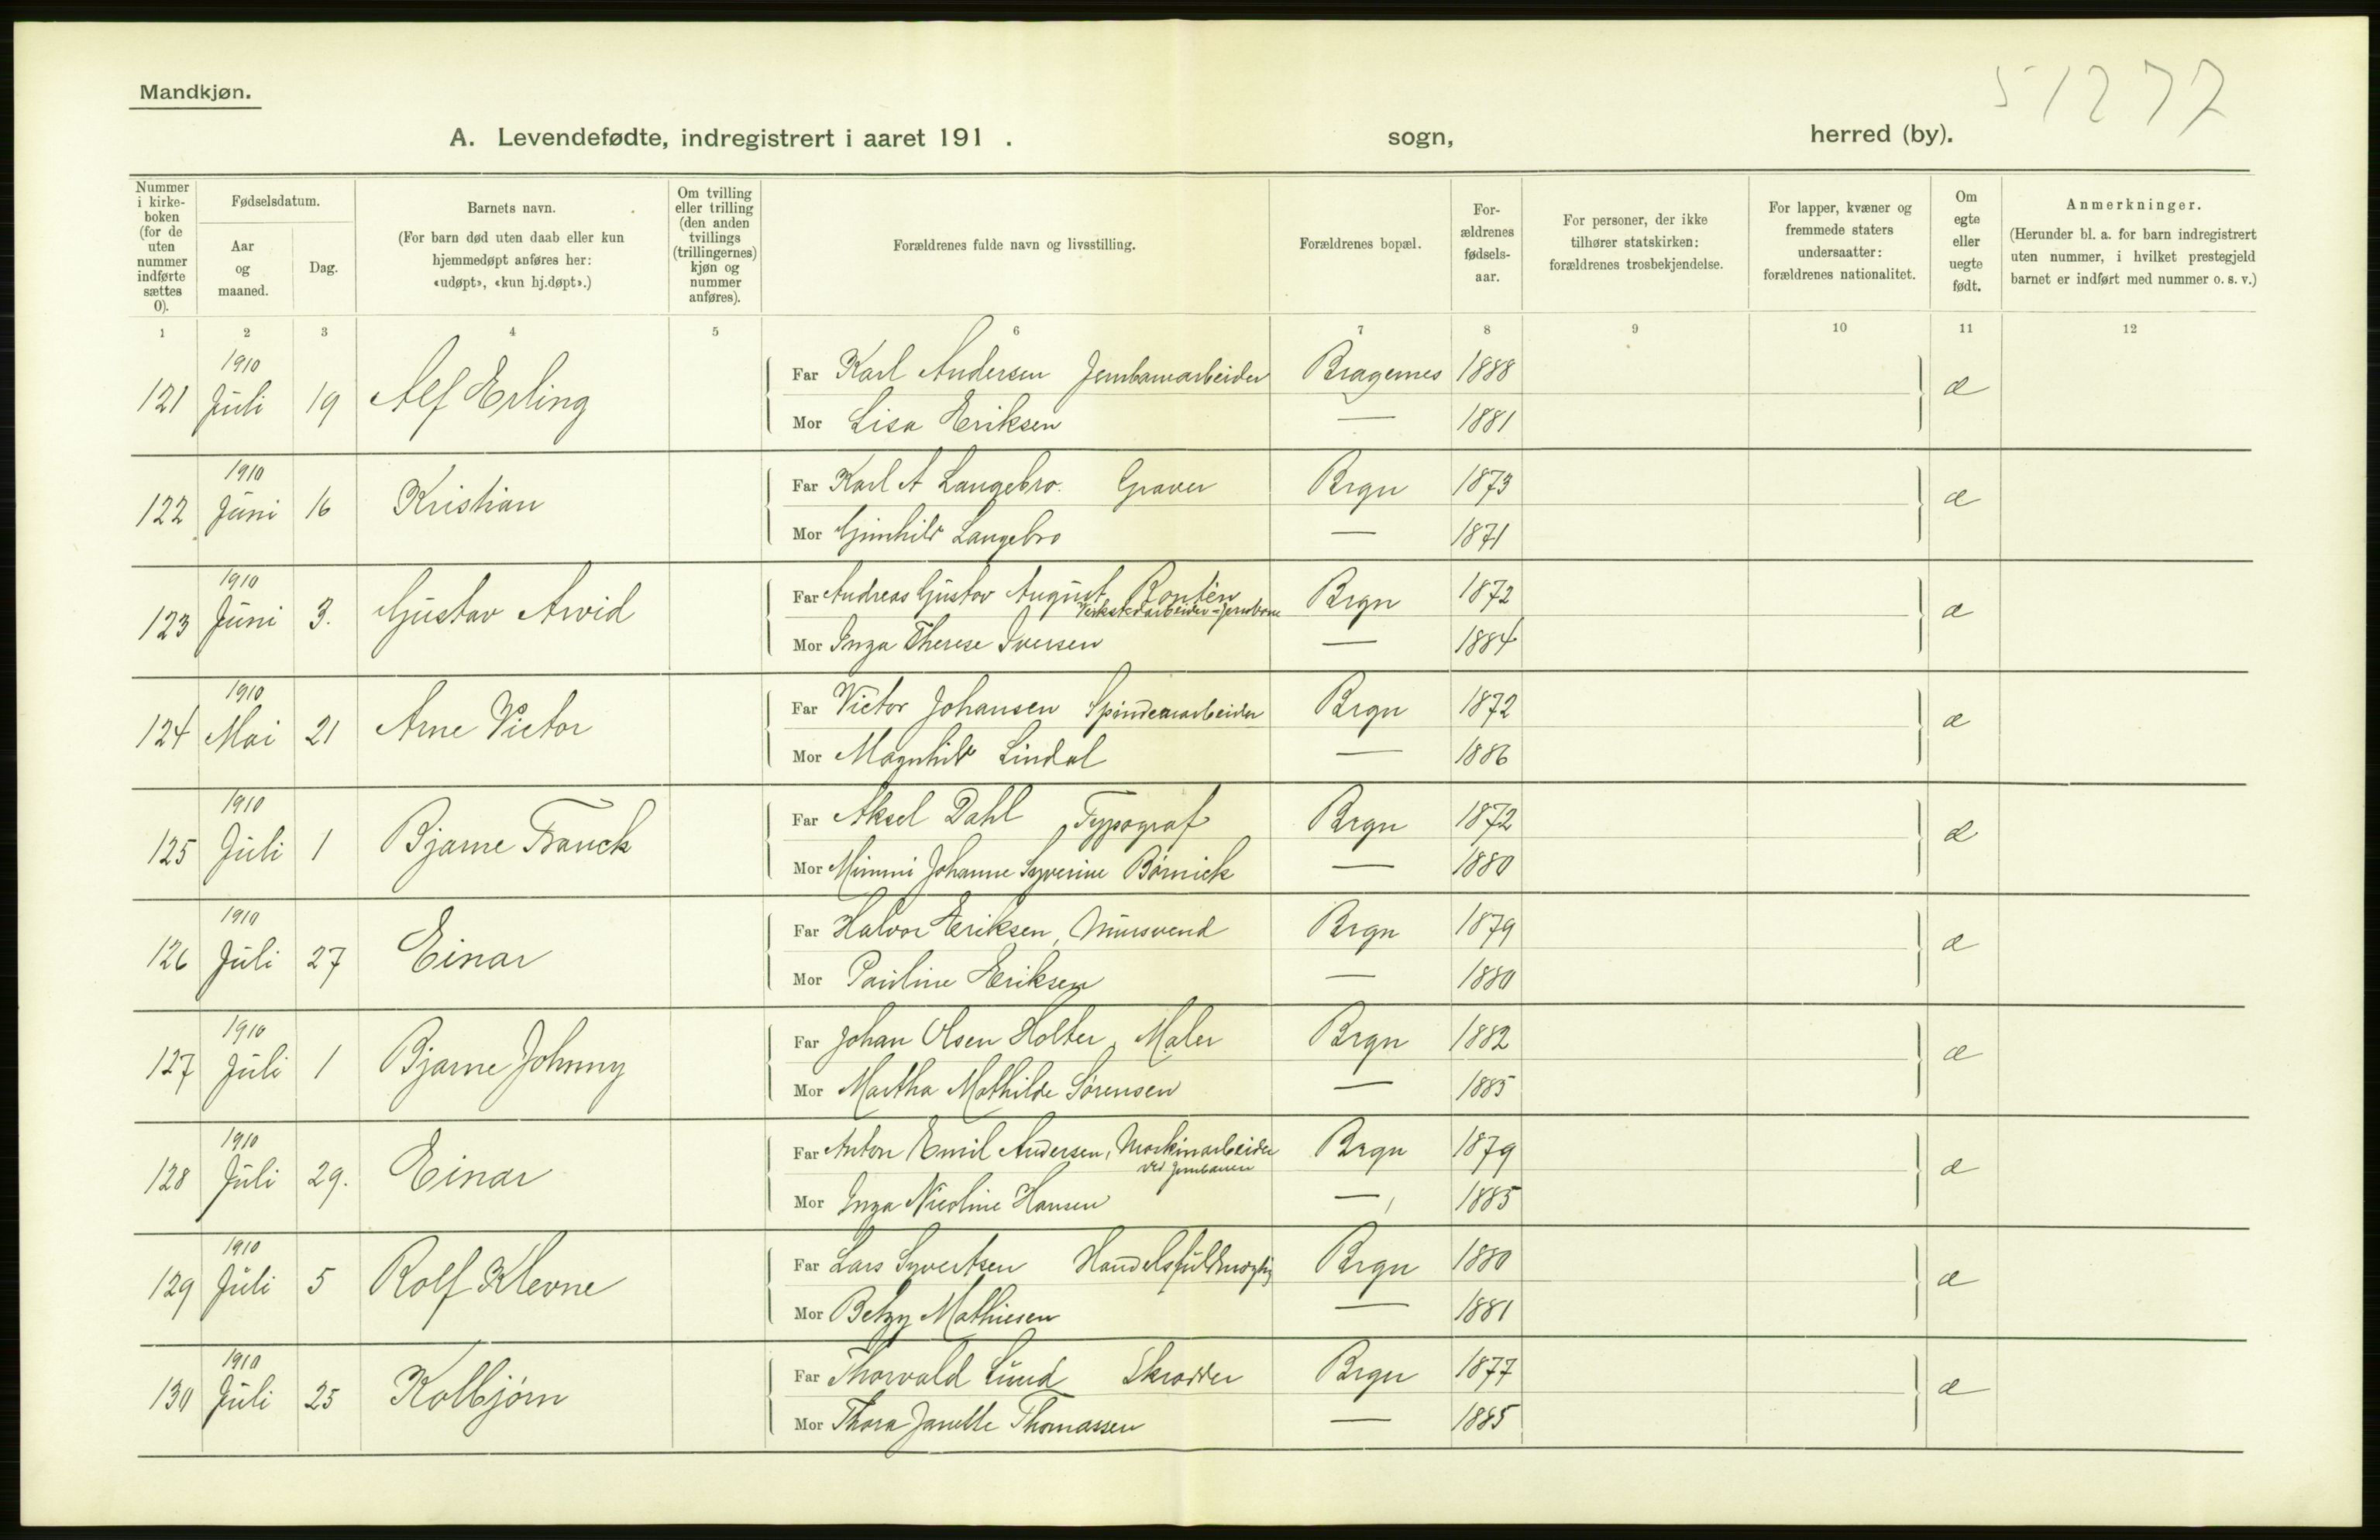 Mandkjøn.
51277
A. Levendefødte, indregistrert i aaret 191 . sogn, herred (by).
Nummer i kirke-boken (for de uten nummer indførte sættes 0).
Fødselsdatum.
Aar og maaned.
Dag.
Barnets navn.
(For barn død uten daab eller kun hjemmedøpt anføres her: «udøpt», «kun hj.døpt».)
Om tvilling eller trilling (den anden tvillings (trillingernes) kjøn og nummer anføres).
Forældrenes fulde navn og livsstilling.
Forældrenes bopæl.
For-ældrenes fødsels-aar.
For personer, der ikke tilhører statskirken: forældrenes trosbekjendelse.
For lapper, kvæner og fremmede staters undersaatter: forældrenes nationalitet.
Om egte eller uegte født.
Anmerkninger.
(Herunder bl. a. for barn indregistrert uten nummer, i hvilket prestegjeld barnet er indført med nummer o. s. v.)
1 2 3 4 5 6 7 8 9 10 11 12
121 1910 Juli 19 Alf Erling Far Karl Andersen Jernbanearbeider Bragernes 1888 æ
Mor Lisa Eriksen — 1881
122 1910 Juni 16 Kristian Far Karl A Langebro. Graver Brgn 1873 æ
Mor Gunhild Langebro — 1871
123 1910 Juni 3. Gustav Arvid Far Andreas Gustav August Rontén Verkstedarbeider-Jernbane Brgn 1872 æ
Mor Inga Therese Iversen — 1884
124 1910 Mai 21 Arne Victor Far Victor Johansen Spinderiarbeider Brgn 1872 æ
Mor Magnhild Lindal — 1886
125 1910 Juli 1 Bjarne Franck Far Aksel Dahl, Typograf Brgn 1872 æ
Mor Mimmi Johanne Syverine Börnick — 1880
126 1910 Juli 27 Einar Far Halvor Eriksen, Mursvend Brgn 1879 æ
Mor Pauline Eriksen — 1880
127 1910 Juli 1 Bjarne Johnny Far Johan Olsen Holter, Maler Brgn 1882 æ
Mor Martha Mathilde Sørensen — 1885
128 1910 Juli 29. Einar Far Anton Emil Andersen, Maskinarbeider ved Jernbanen Brgn 1879 æ
Mor Inga Nicoline Hansen — 1885
129 1910 Juli 5 Rolf Klevne Far Lars Syvertsen Handelsfuldmægtig Brgn 1880 æ
Mor Betzy Mathiesen — 1881
130 1910 Juli 25 Kolbjørn Far Thorvald Lund Skrædder Brgn 1877 æ
Mor Thora Janette Thomassen — 1885